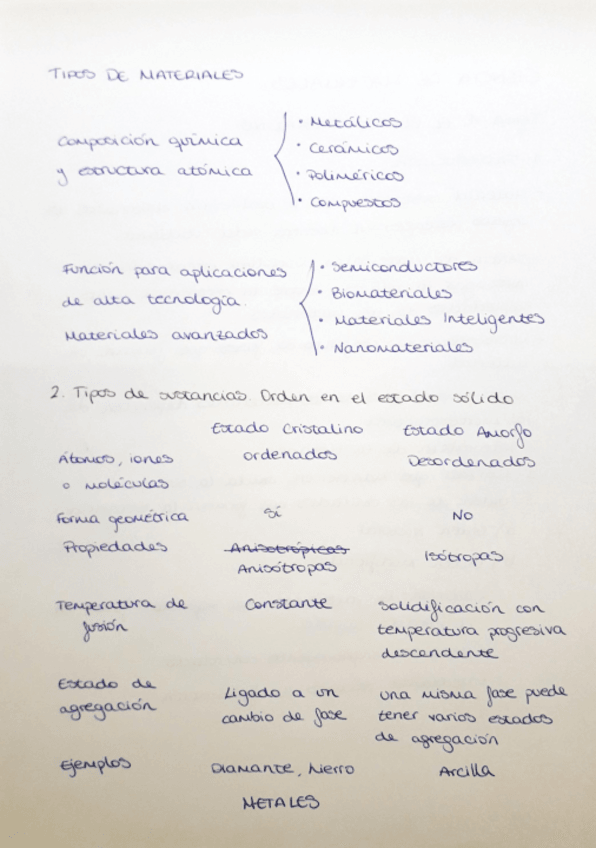 TIPOS DE MATERIALES
• Metálicos
Composición química
• Cerámicos
y estructura atómica
• Poliméricos
• Compuestos
Función para aplicaciones
• Semiconductores
de alta tecnología.
• Biomateriales
Materiales avanzados
• Materiales Inteligentes
• Nanomateriales
2. Tipos de sustancias. Orden en el estado sólido
Estado Cristalino Estado Amorfo
Átomos, iones ordenados Desordenados
o moléculas
Forma geométrica Sí No
Propiedades Anisotrópicas Isótropas
Anisótropas
Temperatura de Constante Solidificación con
fusión temperatura progresiva
descendente
Estado de Ligado a un una misma fase puede
agregación cambio de fase tener varios estados
de agregación
Ejemplos Diamante, hierro Arcilla
METALES